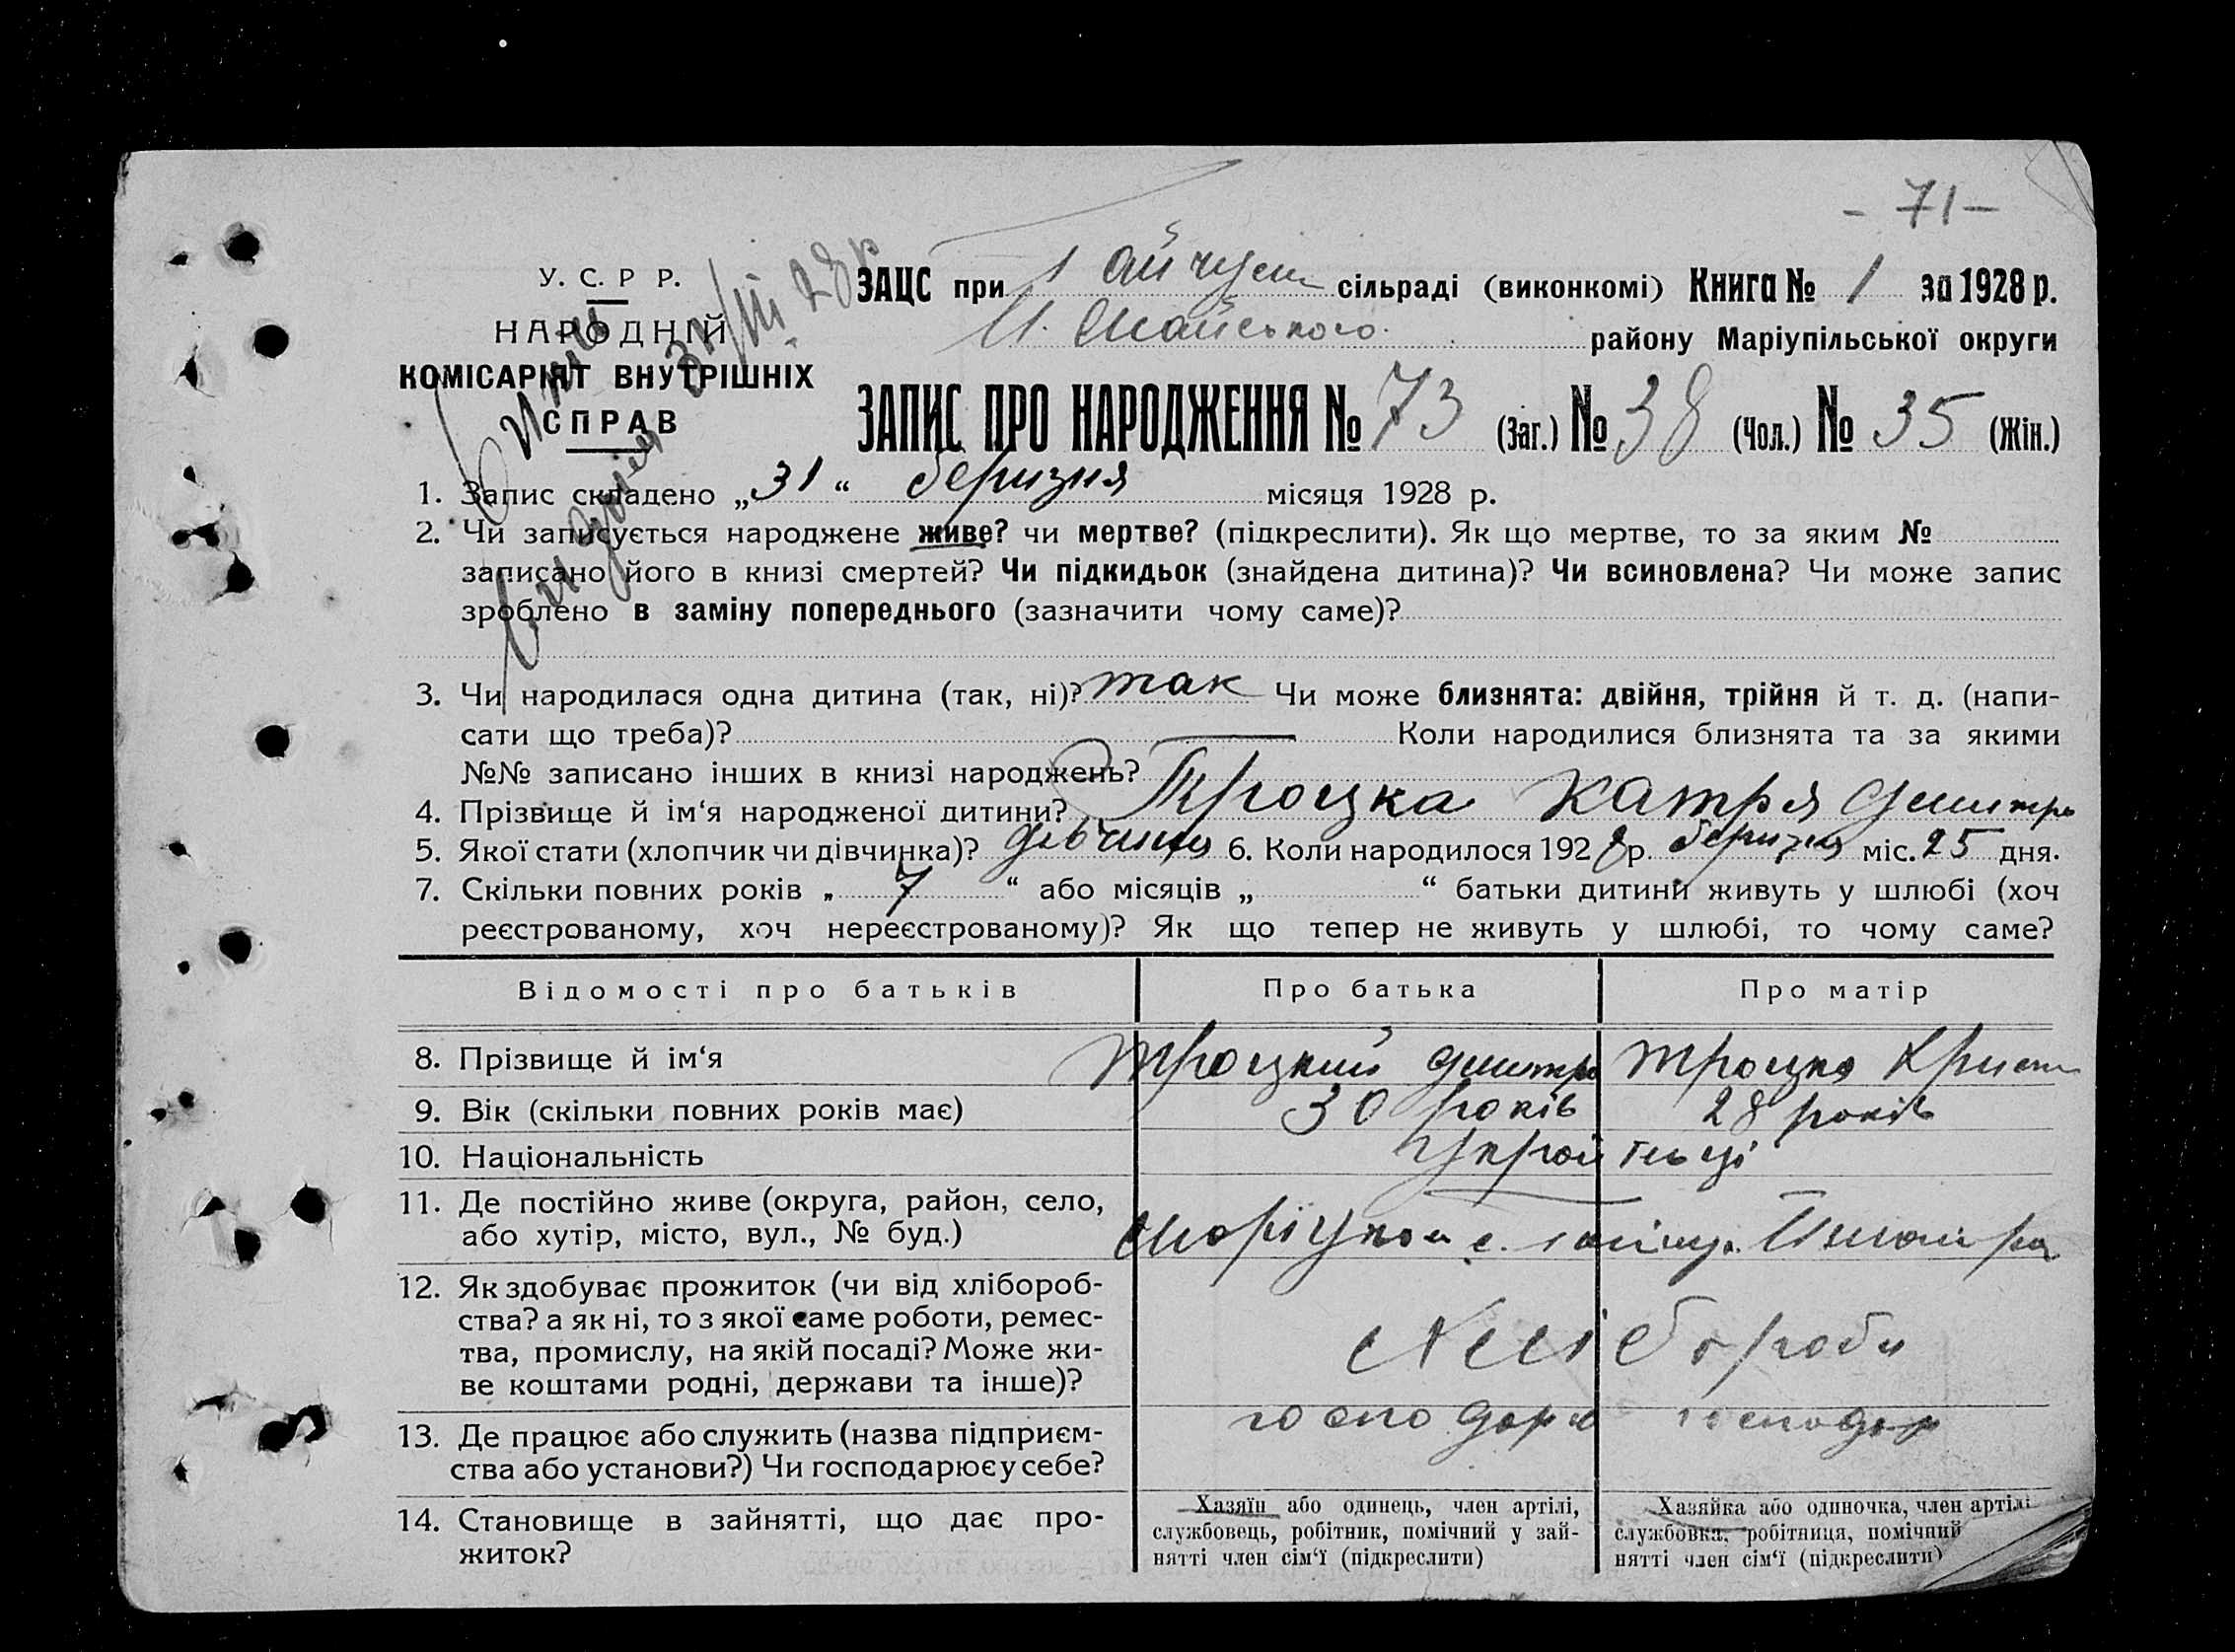 - 71 -
У. С. Р Р.
НАРОДНІЙ
КОМІСАРІЯТ ВНУТРІШНІХ
СПРАВ
31/III 28 р
ЗАЦС при Гайчул сільраді (виконкомі) Книга № 1 за 1928 р.
району Маріупільської округи
ЗАПИС ПРО НАРОДЖЕННЯ № 73 (Заг.) № 38 (Чол.) № 35 (Жін.)
1. Запис складено „31“ беризня місяця 1928 р.
2. Чи записується народжене живе? чи мертве? (підкреслити). Як що мертве, то за яким №
записано його в книзі смертей? Чи підкидьок (знайдена дитина)? Чи всиновлена? Чи може запис
зроблено в заміну попереднього (зазначити чому саме)?
3. Чи народилася одна дитина (так, ні)? так Чи може близнята: двійня, трійня й т. д. (напи-
сати що треба)? Коли народилися близнята та за якими
№№ записано інших в книзі народжень?
4. Прізвище й ім‘я народженої дитини? Троцка Катря Дмитр
5. Якої стати (хлопчик чи дівчинка)? дівчина 6. Коли народилося 1928 р. беризня міс. 25 дня.
7. Скільки повних років „ 7 “ або місяців „ “ батьки дитини живуть у шлюбі (хоч
реєстрованому, хоч нереєстрованому)? Як що тепер не живуть у шлюбі, то чому саме?
Відомості про батьків Про батька Про матір
8. Прізвище й ім‘я Троцкий Дмитро Троцка Христ
9. Вік (скільки повних років має) 30 років 28 років
10. Національність Українці
11. Де постійно живе (округа, район, село,
або хутір, місто, вул., № буд.) Маріупол с.
12. Як здобуває прожиток (чи від хлібороб-
ства? а як ні, то з якої саме роботи, ремес-
тва, промислу, на якій посаді? Може жи-
ве коштами родні, держави та інше)? Хліборобы
13. Де працює або служить (назва підприєм-
ства або установи?) Чи господарює у себе? господар господар
14. Становище в зайнятті, що дає про-
житок?
Хазяїн або одинець, член артілі,
службовець, робітник, помічний у зай-
нятті член сім‘ї (підкреслити)
Хазяйка або одиночка, член артілі
службовка, робітниця, помічний
нятті член сім‘ї (підкреслити)